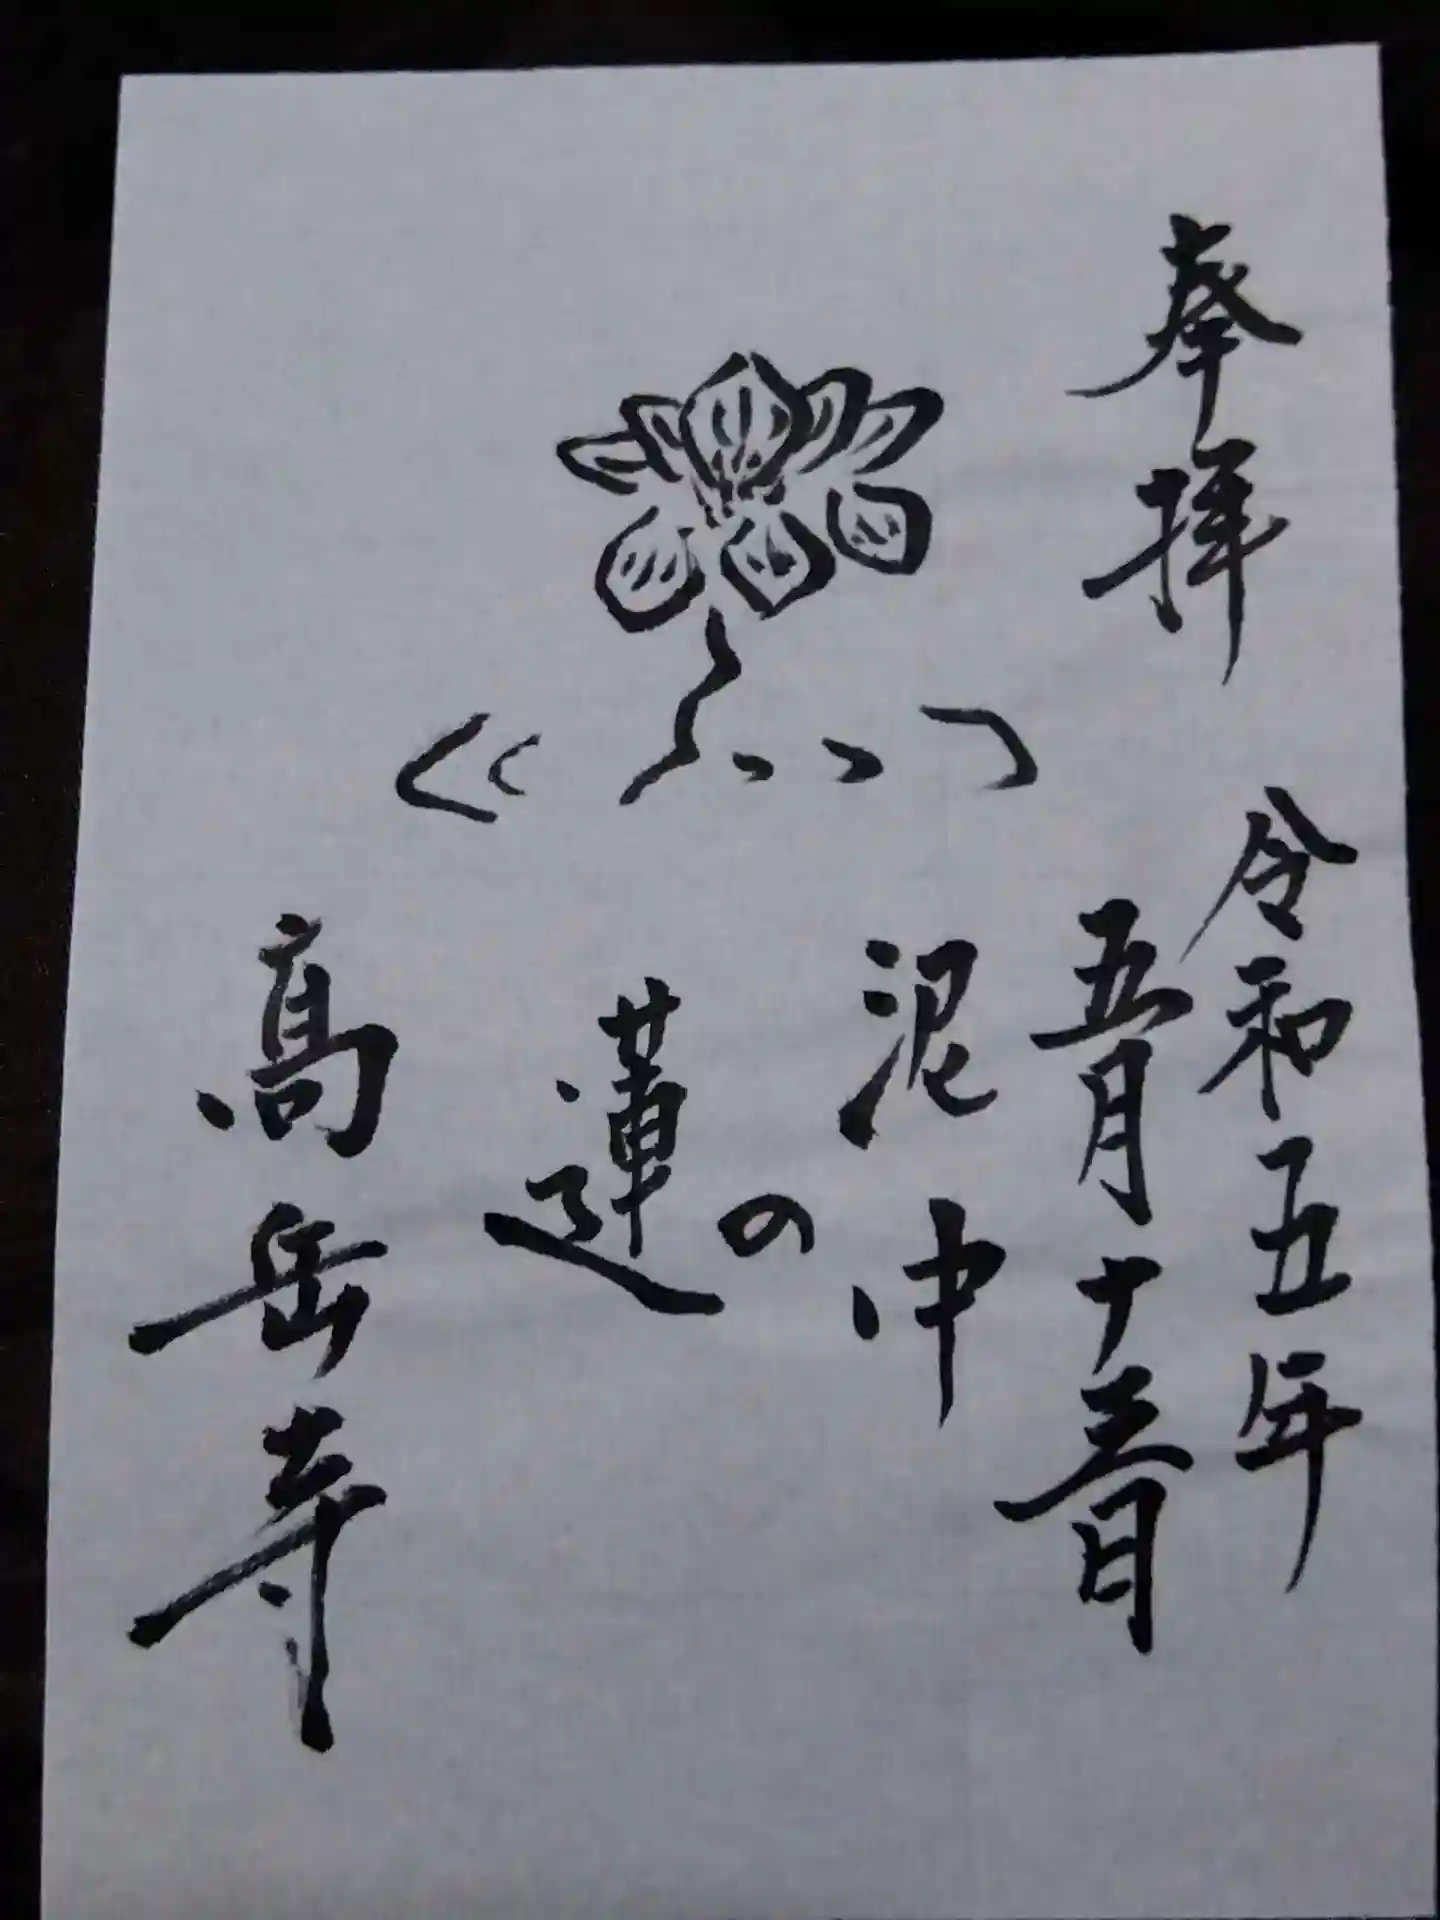 奉拝
令和五年
五月十三日
泥中
の
蓮
高岳寺